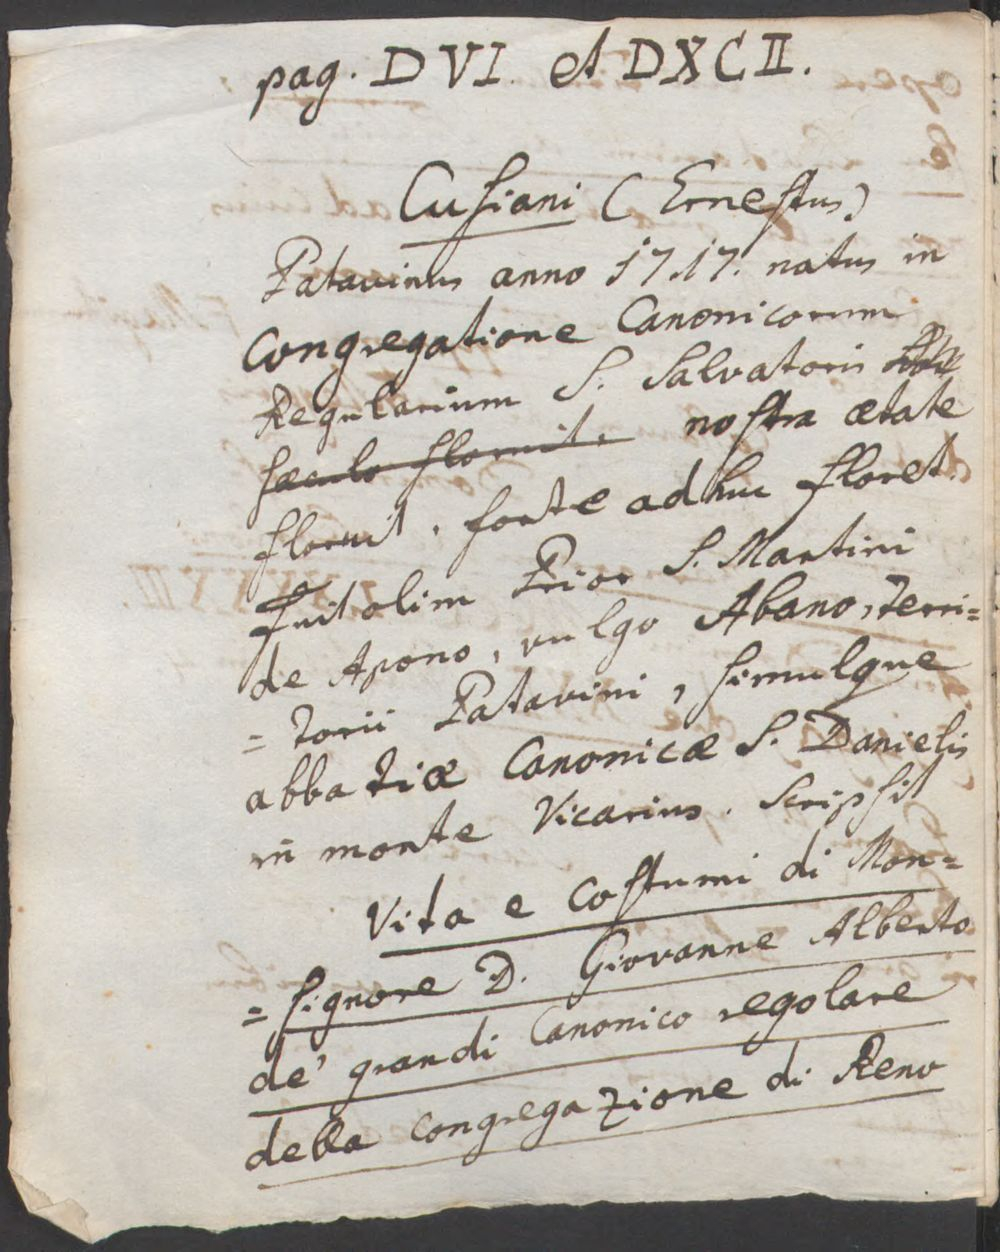 pag. DVI. et DXCII.
Cusiani (Ernestus)
Patavinus anno 1717. natus in
Congregatione Canonicorum
Regularium S. Salvatoris
saeculo floruit. nostra ætate
floruit, forte adhuc floret.
Fuit olim Prior S. Martini
de Apono, vulgo Abano, Terri=
=torii Patavini, simulque
abbatiæ Canonicæ S. Danielis
in monte Vicarius. Scripsit
Vita e Costumi di Mon=
=signore D. Giovanne Alberto
de' grandi Canonico regolare
della Congregazione di Reno